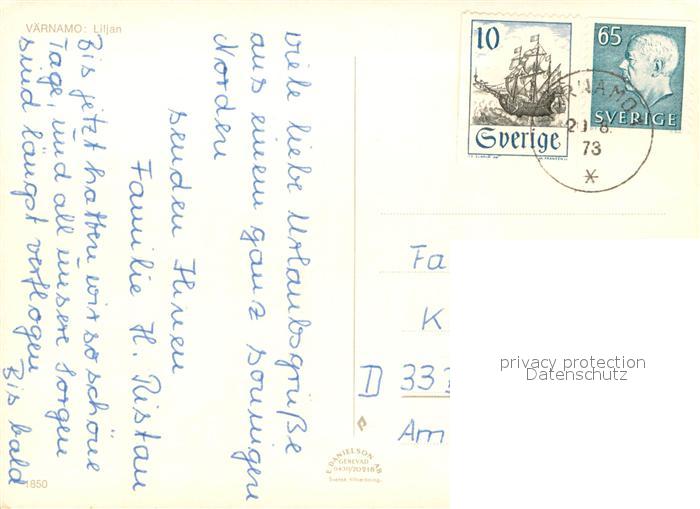 VÄRNAMO: Liljan
viele liebe Urlaubsgrüße
aus einem ganz sonnigen
Norden
senden Ihnen
Familie H. Ristau
Bis jetzt hatten wir so schöne
Tage, und all unsere Sorgen
sind längst verflogen
Bis bald
1850
E. DANIELSON AB
GENEVAD
0430/70218
Svensk tillverkning.
10
Sverige
65
SVERIGE
VÄRNAMO
29 8
73
Fa
K
D 33
Am
privacy protection
Datenschutz